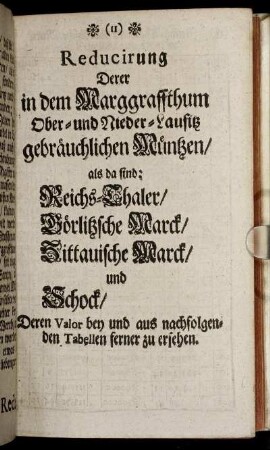 (11)
Reducirung
Derer
in dem Marggraffthum
Ober- und Nieder-Lausitz
gebräuchlichen Müntzen/
als da sind:
Reichs-Thaler/
Görlitzsche Marck/
Zittauische Marck/
und
Schock/
Deren Valor bey und aus nachfolgen-
den Tabellen ferner zu ersehen.